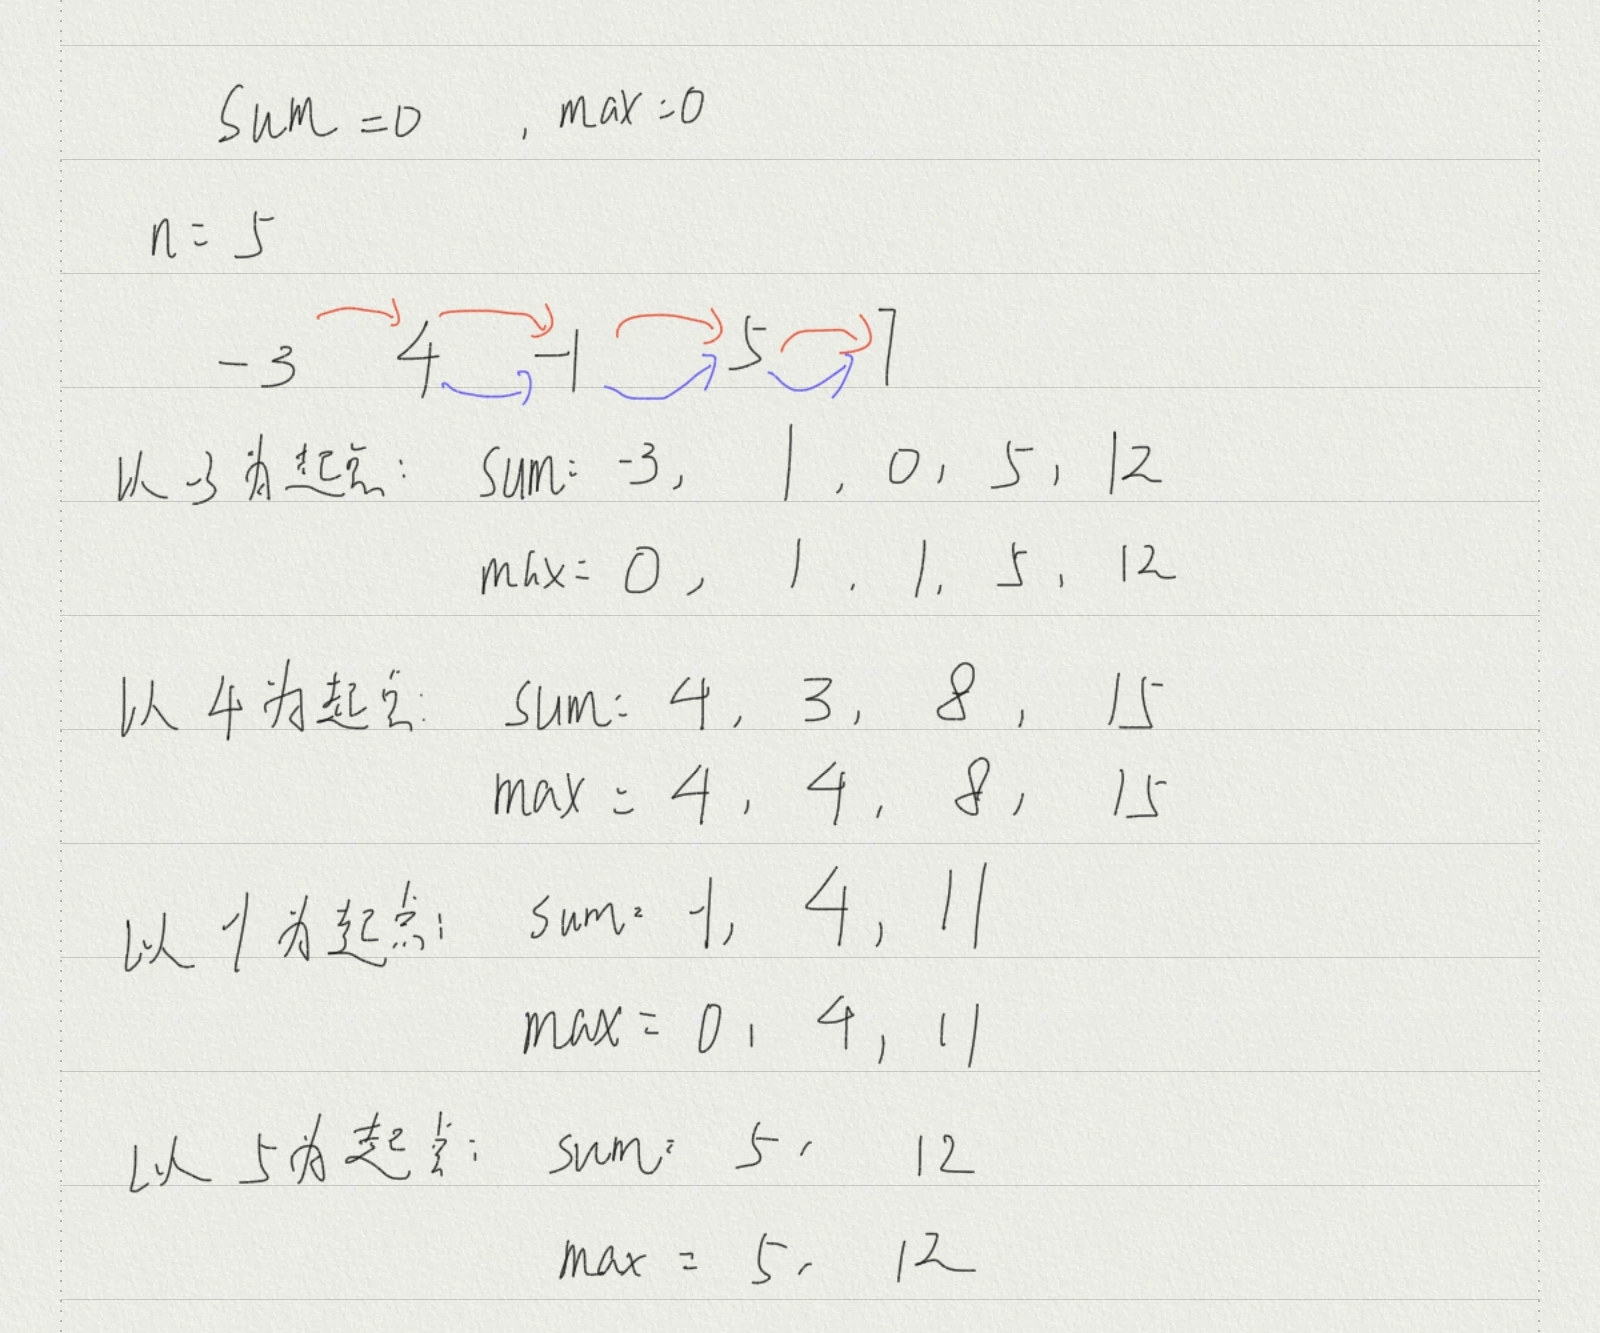 sum=0 , max=0
n=5
-3 4 -1 5 7
以-3为起点: sum=-3, 1, 0, 5, 12
max=0, 1, 1, 5, 12
以4为起点: sum=4, 3, 8, 15
max=4, 4, 8, 15
以-1为起点: sum=-1, 4, 11
max=0, 4, 11
以5为起点: sum=5, 12
max=5, 12